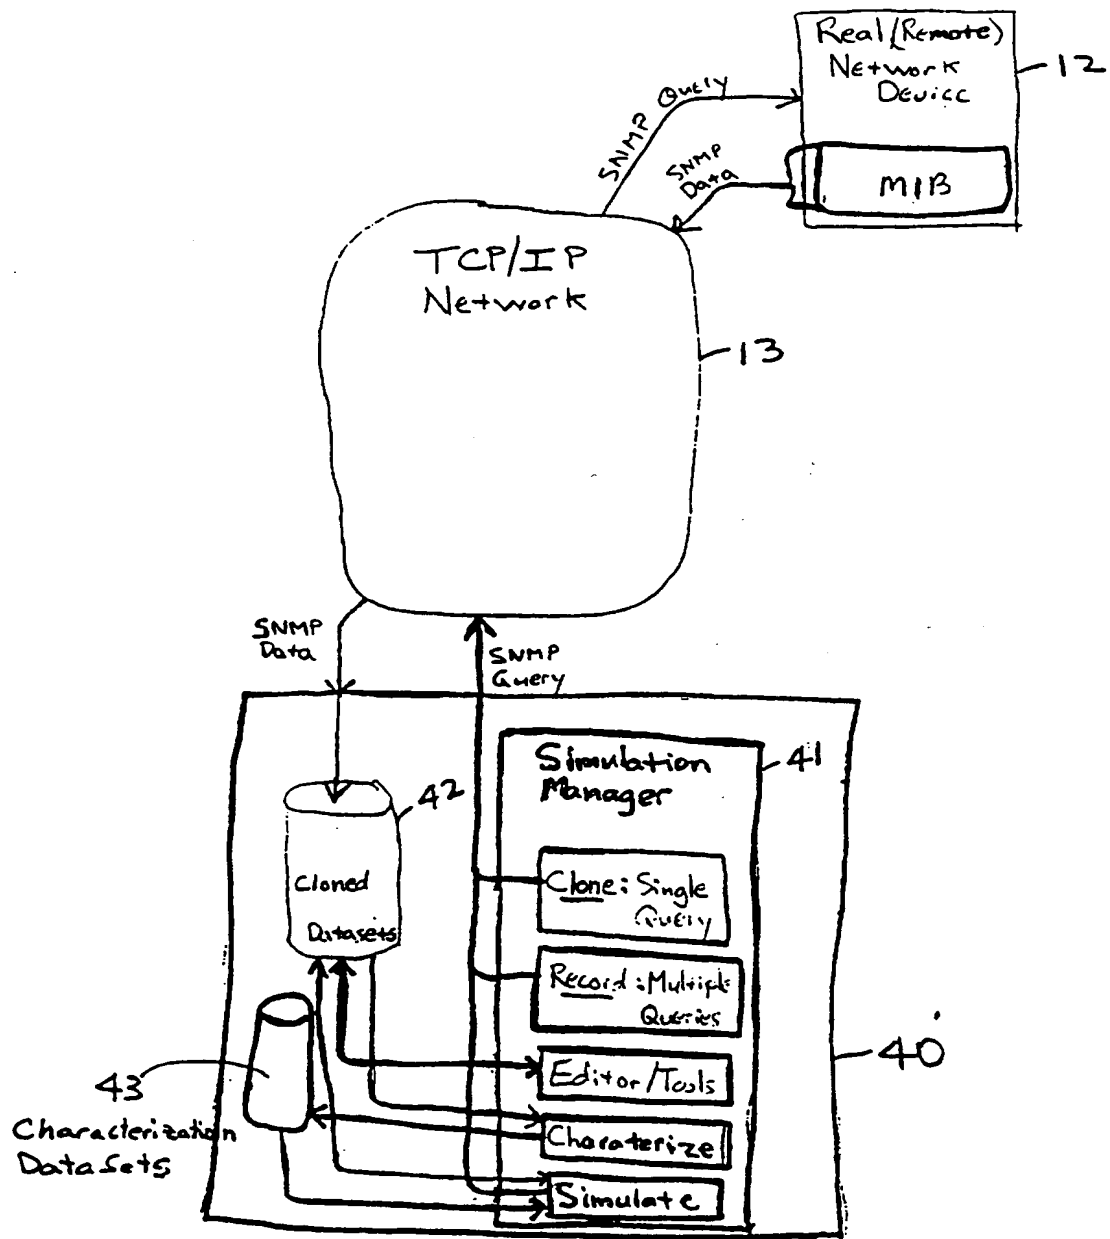 Real (Remote)
Network
Device
12
MIB
SNMP Query
SNMP
Data
TCP/IP
Network
13
SNMP
Data
SNMP
Query
Simulation
Manager
41
42
Cloned
Datasets
Clone: Single
Query
Record: Multiple
Queries
Editor/Tools
40
43
Characterization
DataSets
Charaterize
Simulate